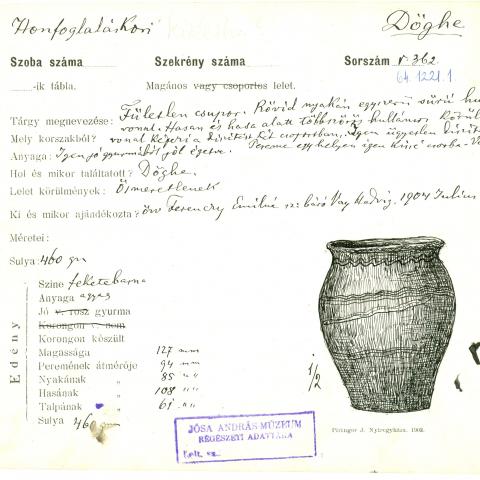 Honfoglaláskori
Döghe
Szoba száma Szekrény száma Sorszám r. 362
64.1221.1
-ik tábla. Magános vagy csoportos lelet.
Tárgy megnevezése: Fületlen csupor. Rövid nyakán egyszerű sűrű
vonal. Hasán és hasa alatt többszörös hullámos.
Mely korszakból? vonal képezi a díszítést két csoportban. Igen ügyetlen
Anyaga: Igen jó gyurmából jól égetve. Pereme egy helyen igen kissé csorba.
Hol és mikor találtatott? Döghe.
Lelet körülmények: Ösmeretlenek
Ki és mikor ajándékozta? özv Ferenczy Emilné sz: báró Vay Hedvig. 1904 Julius
Méretei:
Sulya: 460 gr
Edény
Szine feketebarna
Anyaga agyag
Jó v. rosz gyurma
Korongon v. nem
Korongon készült
Magassága 127 mm
Peremének átmérője 94 mm
Nyakának „ 85 „„
Hasának „ 108 „„
Talpának „ 61 „„
Sulya 460 gr
1/2
Piringer J. Nyiregyháza. 1902.
JÓSA ANDRÁS MÚZEUM
RÉGÉSZETI ADATTÁRA